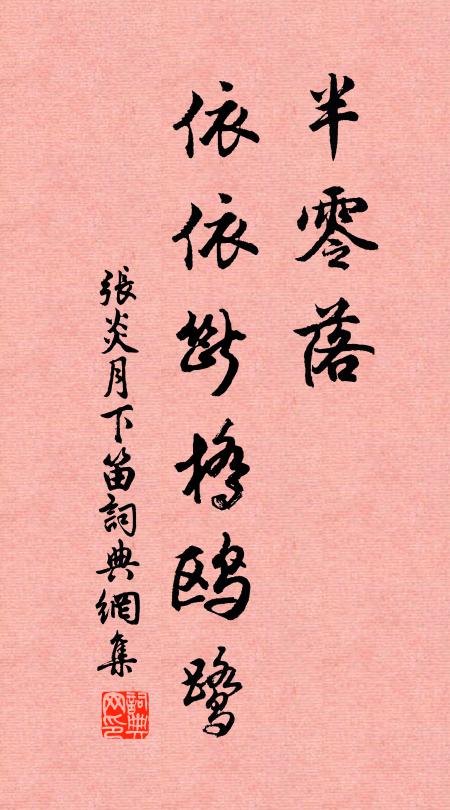 半零落
依依斷橋鷗鷺
張炎月下笛詞典網集
詞典网印